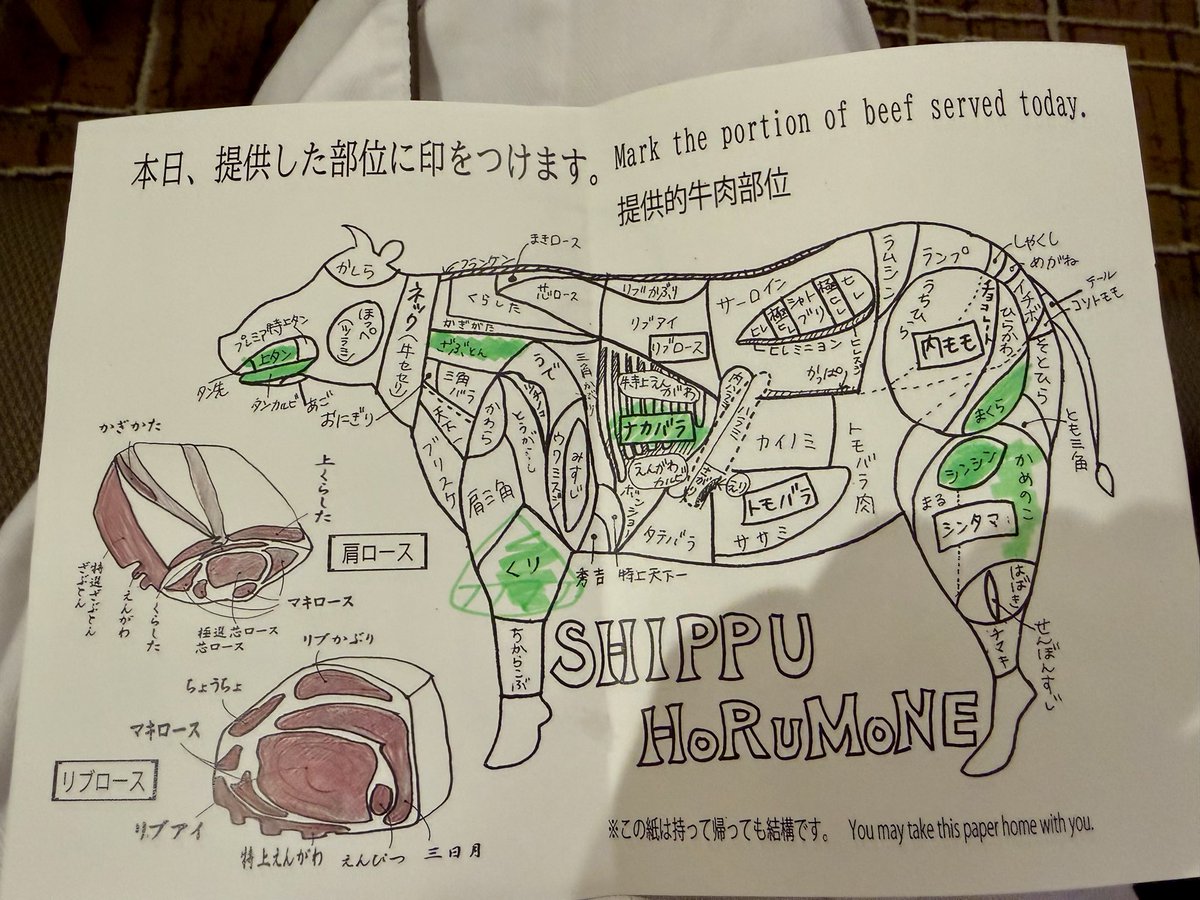 本日、提供した部位に印をつけます。
Mark the portion of beef served today.
提供的牛肉部位
かしら
ネック(牛セセリ)
フランケン
まきロース
くらした
芯ロース
かぎがた
ざぶとん
プレミア特上タン
上タン
タン先
タンカルビ
あご
おにぎり
ほっぺ
ツラミ
三角バラ
ブリスケ
かわら
うで
とうがらし
ウワミスジ
みすじ
肩三角
くり
ちからこぶ
三角かぶり
リブかぶり
リブアイ
リブロース
特上えんがわ
ナカバラ
えんがわカルビ
タテバラ
秀吉
特上天下一
サーロイン
ヒレ
極ヒレ
シャトブリ
極ヒレ
ヒレ
ヒレミニヨン
かっぱ
カイノミ
トモバラ
ササミ
トモバラ肉
ラムシン
ランプ
しゃくし
めがね
イチボ
テール
コソトモモ
うちひら
内モモ
ひらかわ
そとひら
まくら
とも三角
シンシン
かめのこ
まる
シンタマ
はばき
せんぼんすじ
チマキ
かぎかた
上くらした
肩ロース
特選ざぶとん
えんがわ
くらした
マキロース
極選芯ロース
芯ロース
リブかぶり
ちょうちょ
マキロース
リブロース
リブアイ
特上えんがわ
えんぴつ
三日月
SHIPPU
HORUMONE
※この紙は持って帰っても結構です。 You may take this paper home with you.